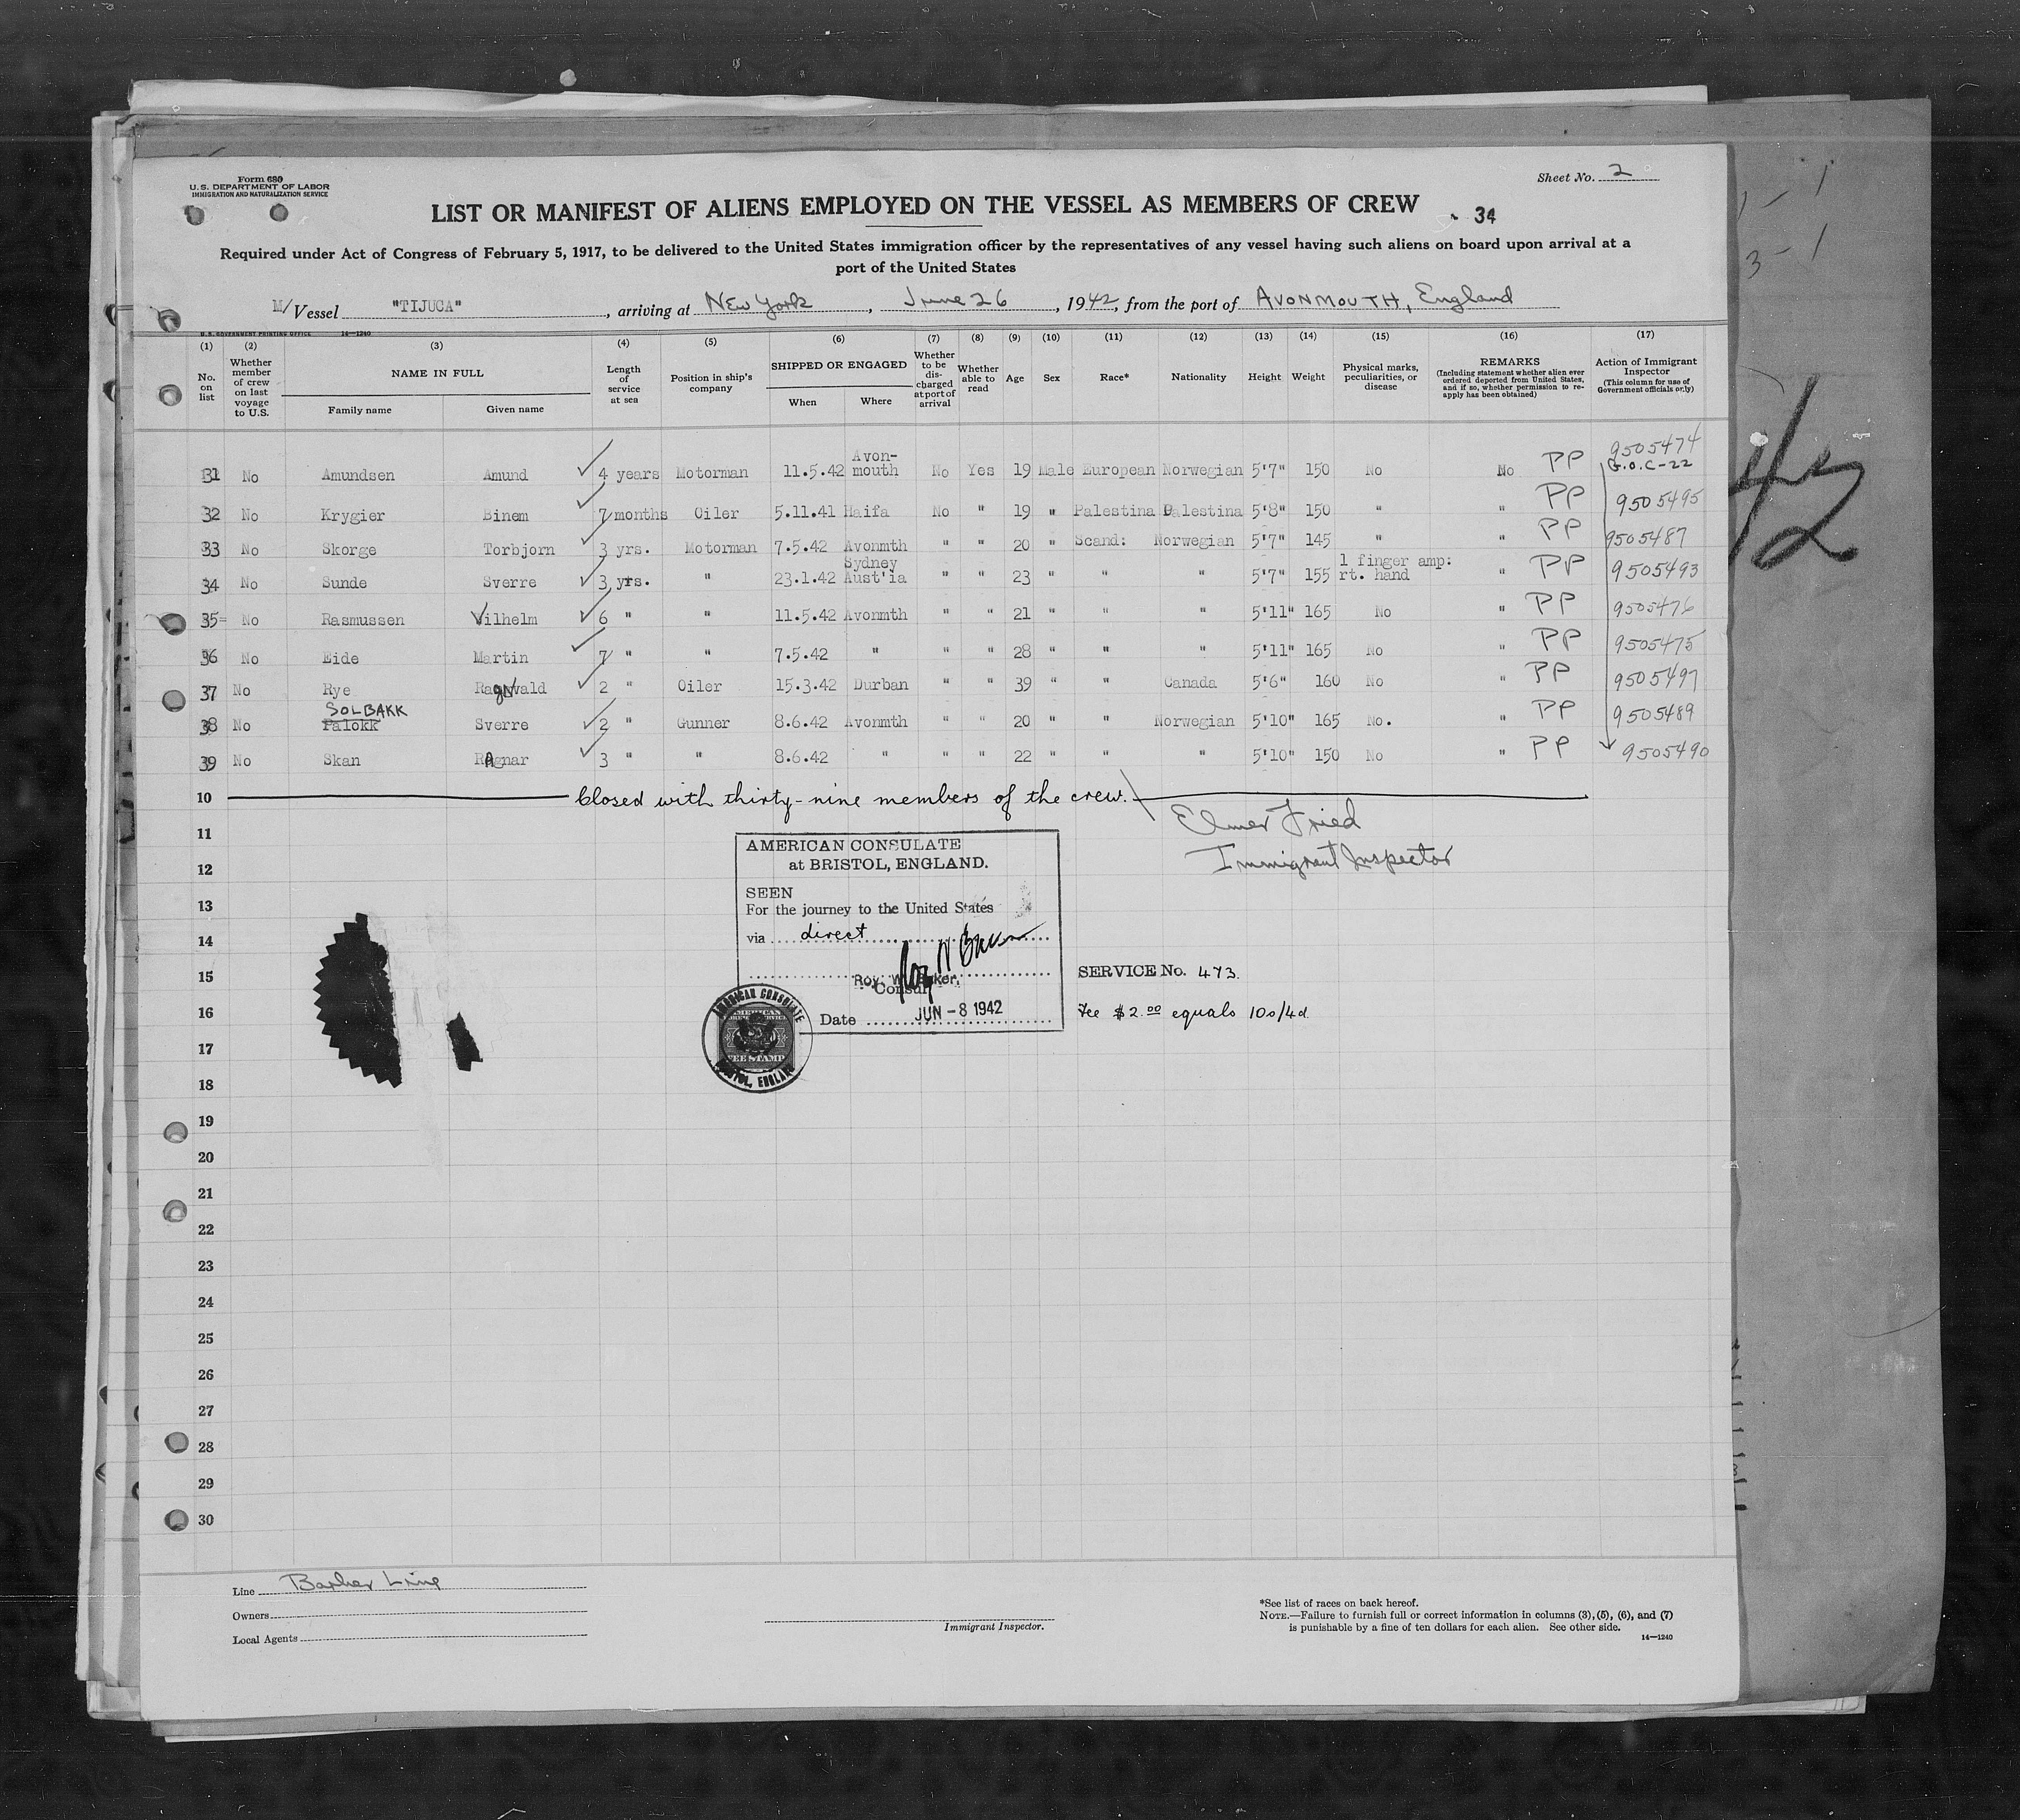 Form 680
U.S. DEPARTMENT OF LABOR
IMMIGRATION AND NATURALIZATION SERVICE
Sheet No. 2
LIST OR MANIFEST OF ALIENS EMPLOYED ON THE VESSEL AS MEMBERS OF CREW
34
Required under Act of Congress of February 5, 1917, to be delivered to the United States immigration officer by the representatives of any vessel having such aliens on board upon arrival at a
port of the United States
M/Vessel "TIJUCA", arriving at New York, June 26, 1942, from the port of AVONMOUTH, England
U.S. GOVERNMENT PRINTING OFFICE 14—1240
(1) (2) (3) (4) (5) (6) (7) (8) (9) (10) (11) (12) (13) (14) (15) (16) (17)
No. on list
Whether member of crew on last voyage to U.S.
NAME IN FULL
Family name
Given name
Length of service at sea
Position in ship's company
SHIPPED OR ENGAGED
When
Where
Whether to be discharged at port of arrival
Whether able to read
Age
Sex
Race*
Nationality
Height
Weight
Physical marks, peculiarities, or disease
REMARKS
(Including statement whether alien ever ordered deported from United States, and if so, whether permission to reapply has been obtained)
Action of Immigrant Inspector
(This column for use of Government officials only)
31 No Amundsen Amund 4 years Motorman 11.5.42 Avon-mouth No Yes 19 Male European Norwegian 5'7" 150 No No PP 9505474
G.O.C-22
32 No Krygier Binem 7 months Oiler 5.11.41 Haifa No " 19 " Palestina Palestina 5'8" 150 " " PP 9505495
33 No Skorge Torbjorn 3 yrs. Motorman 7.5.42 Avonmth " " 20 " Scand: Norwegian 5'7" 145 " " PP 9505487
34 No Sunde Sverre 3 yrs. " 23.1.42 Sydney Aust'ia " " 23 " " " 5'7" 155 1 finger amp: rt. hand " PP 9505493
35 No Rasmussen Vilhelm 6 " " 11.5.42 Avonmth " " 21 " " 5'11" 165 No " PP 9505476
36 No Eide Martin 7 " " 7.5.42 " " " 28 " " " 5'11" 165 No " PP 9505475
37 No Rye Ragnvald 2 " Oiler 15.3.42 Durban " " 39 " " Canada 5'6" 160 No " PP 9505497
SOLBAKK
38 No Palokk Sverre 2 " Gunner 8.6.42 Avonmth " " 20 " " Norwegian 5'10" 165 No. " PP 9505489
39 No Skan Ragnar 3 " " 8.6.42 " " " 22 " " " 5'10" 150 No " PP 9505490
10 Closed with thirty-nine members of the crew.
Elmer Fried
Immigrant Inspector
11
12
13
14
15
16
17
18
19
20
21
22
23
24
25
26
27
28
29
30
AMERICAN CONSULATE
at BRISTOL, ENGLAND.
SEEN
For the journey to the United States
via direct
Roy W. Baker,
Consul
Date JUN -8 1942
AMERICAN CONSULATE
FEE STAMP
BRISTOL, ENGLAND
SERVICE No. 473.
Fee $2.00 equals 10s/4d
Line Barber Line
Owners
Local Agents
Immigrant Inspector.
*See list of races on back hereof.
NOTE.—Failure to furnish full or correct information in columns (3), (5), (6), and (7)
is punishable by a fine of ten dollars for each alien. See other side.
14—1240